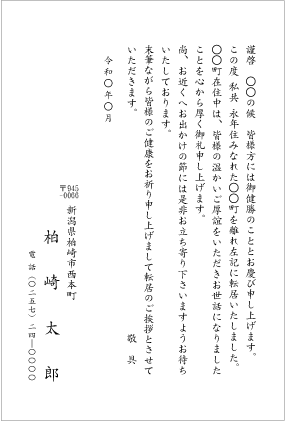 謹啓　〇〇の候　皆様方には御健勝のこととお慶び申し上げます。
この度　私共　永年住みなれた〇〇町を離れ左記に転居いたしました。
〇〇町在住中は、皆様の温かいご厚誼をいただきお世話になりました
ことを心から厚く御礼申し上げます。
尚、お近くへお出かけの節には是非お立ち寄り下さいますようお待ち
いたしております。
末筆ながら皆様のご健康をお祈り申し上げまして転居のご挨拶とさせて
いただきます。
敬具
令和〇年〇月
〒945-0066
新潟県柏崎市西本町
柏崎太郎
電話(〇二五七)二四―〇〇〇〇